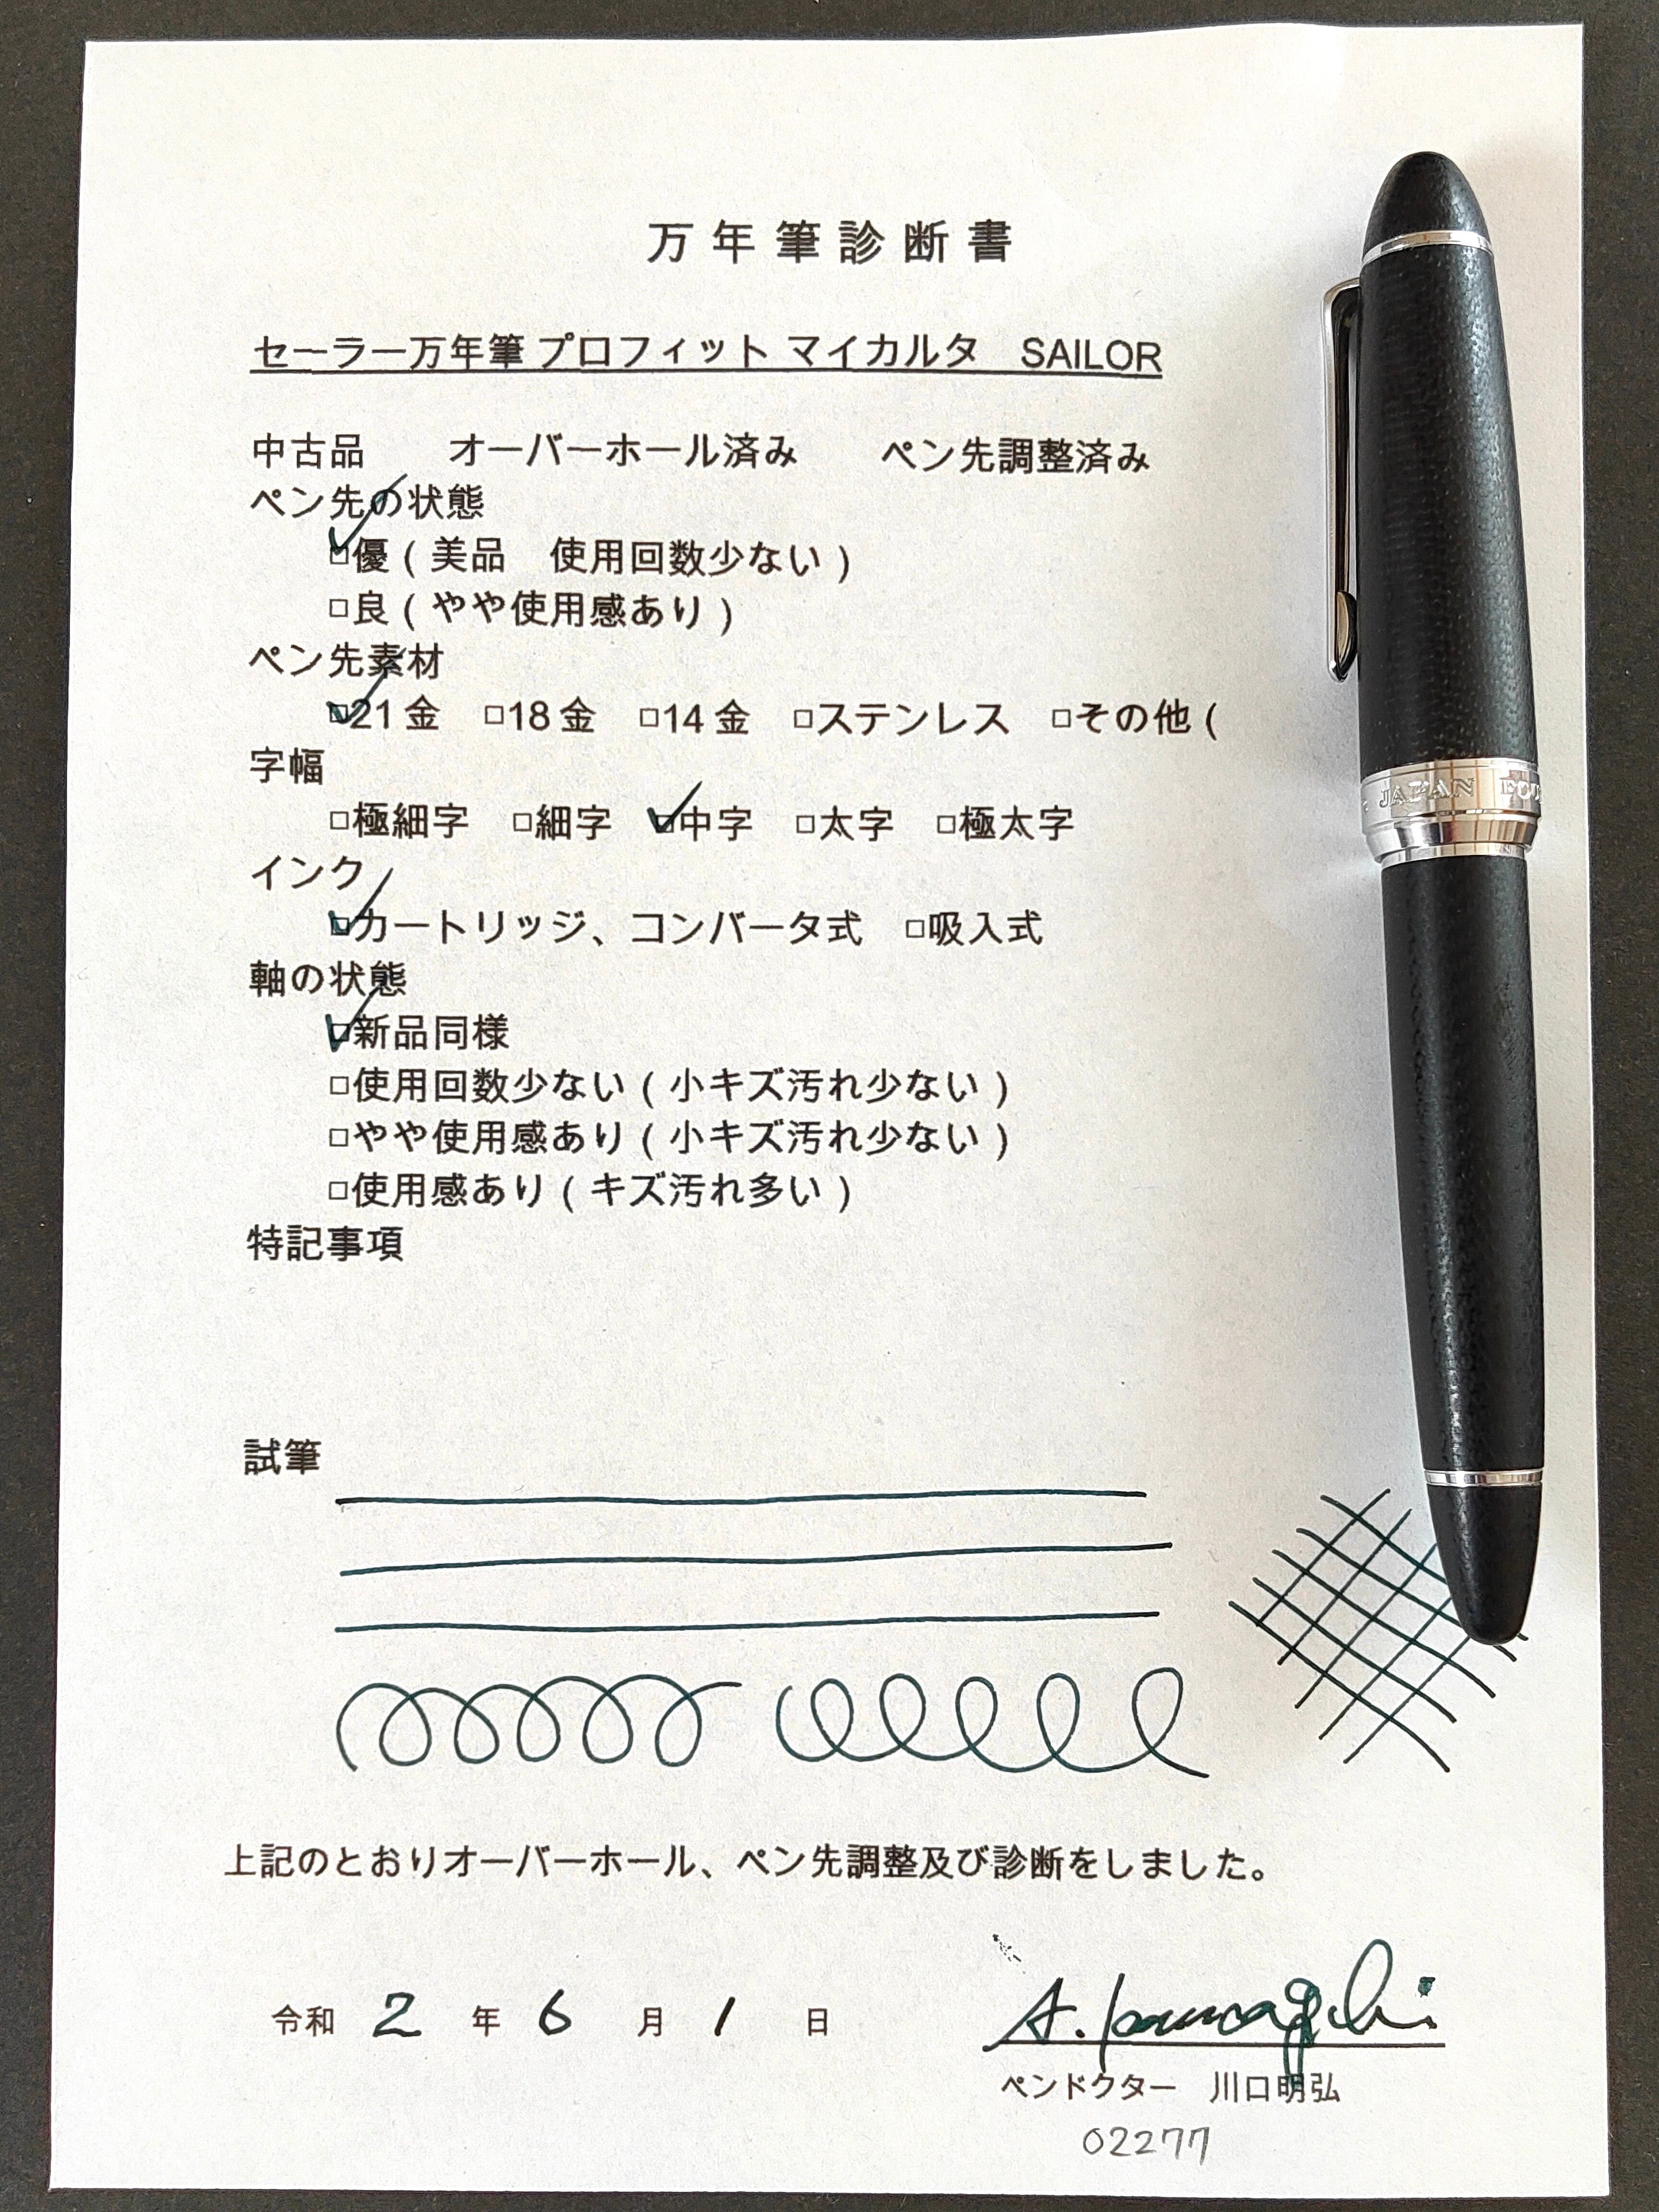 万年筆診断書
セーラー万年筆 プロフィット マイカルタ　SAILOR
中古品　　オーバーホール済み　　ペン先調整済み
ペン先の状態
☑優（美品　使用回数少ない）
□良（やや使用感あり）
ペン先素材
☑21金　□18金　□14金　□ステンレス　□その他（
字幅
□極細字　□細字　☑中字　□太字　□極太字
インク
☑カートリッジ、コンバータ式　□吸入式
軸の状態
☑新品同様
□使用回数少ない（小キズ汚れ少ない）
□やや使用感あり（小キズ汚れ少ない）
□使用感あり（キズ汚れ多い）
特記事項
試筆
上記のとおりオーバーホール、ペン先調整及び診断をしました。
令和 2 年 6 月 1 日
A. Kawaguchi
ペンドクター　川口明弘
02277
JAPAN